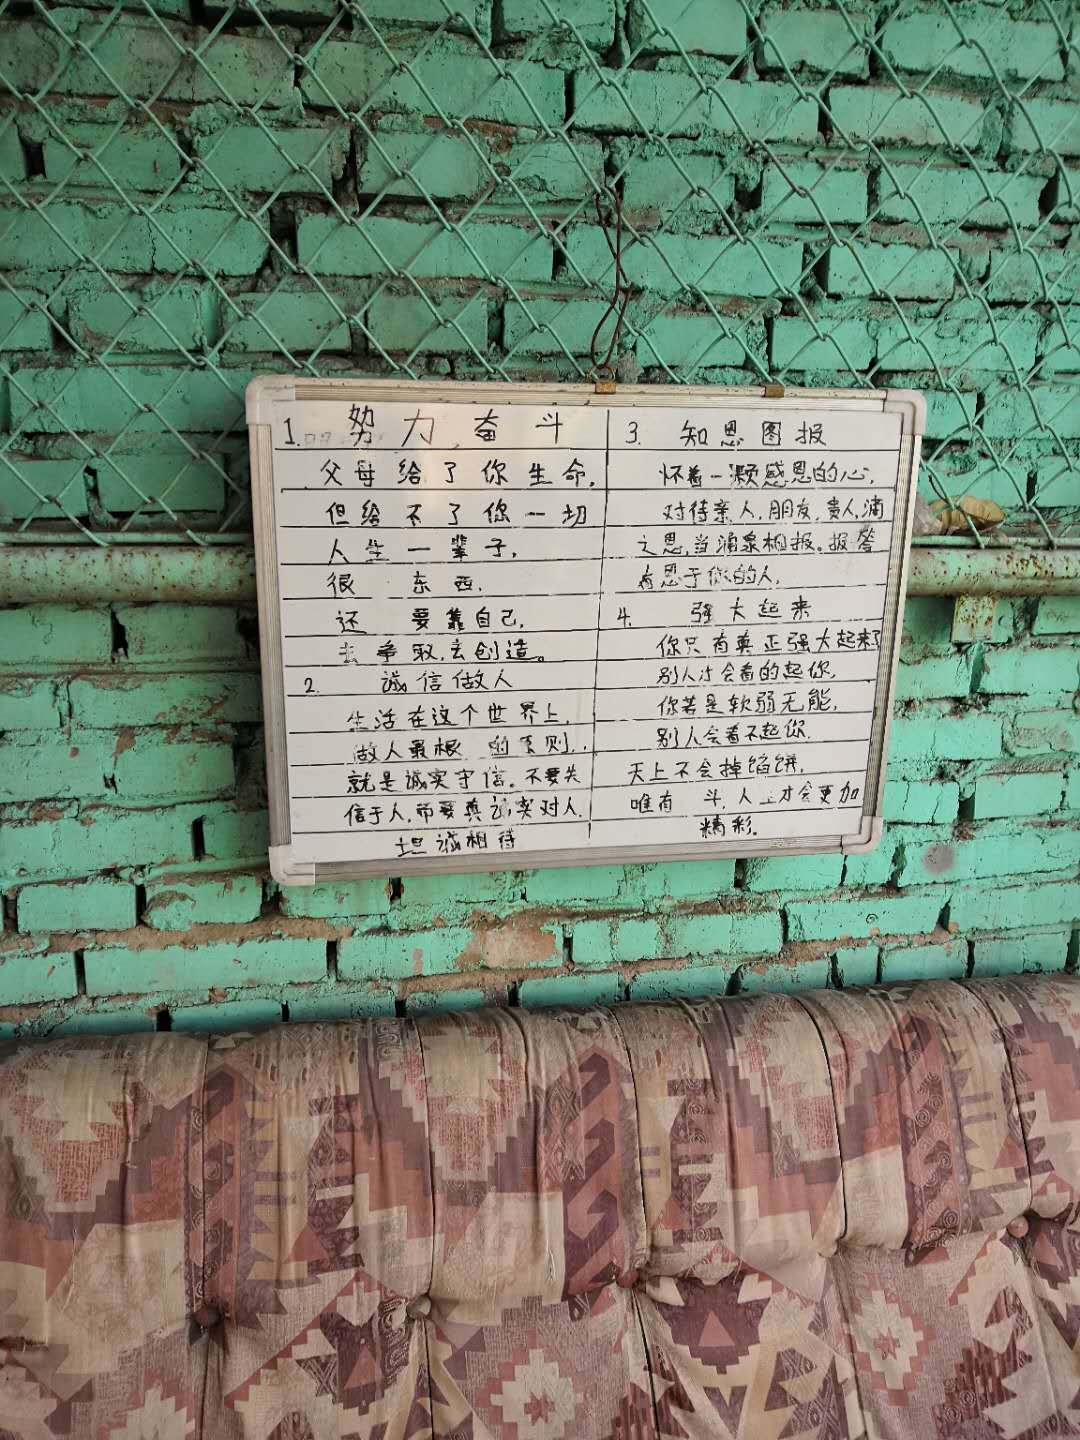 1. 努力奋斗
父母给了你生命,
但给不了你一切
人生一辈子,
很 东西,
还 要靠自己,
去争取,去创造。
2. 诚信做人
生活在这个世界上,
做人最根 的原则,
就是诚实守信。不要失
信于人,而要真 实对人,
坦诚相待
3. 知恩图报
怀着一颗感恩的心,
对待亲人,朋友,贵人,滴
之恩,当涌泉相报。报答
有恩于你的人,
4. 强大起来
你只有真正强大起来了
别人才会看的起你,
你若是软弱无能,
别人会看不起你,
天上不会掉馅饼,
唯有 斗,人生才会更加
精彩。